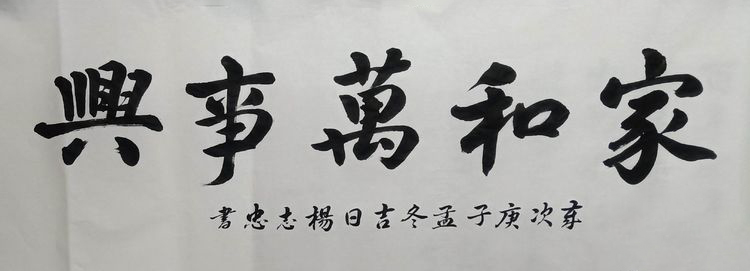 家和萬事興
歲次庚子孟冬吉日楊志忠書